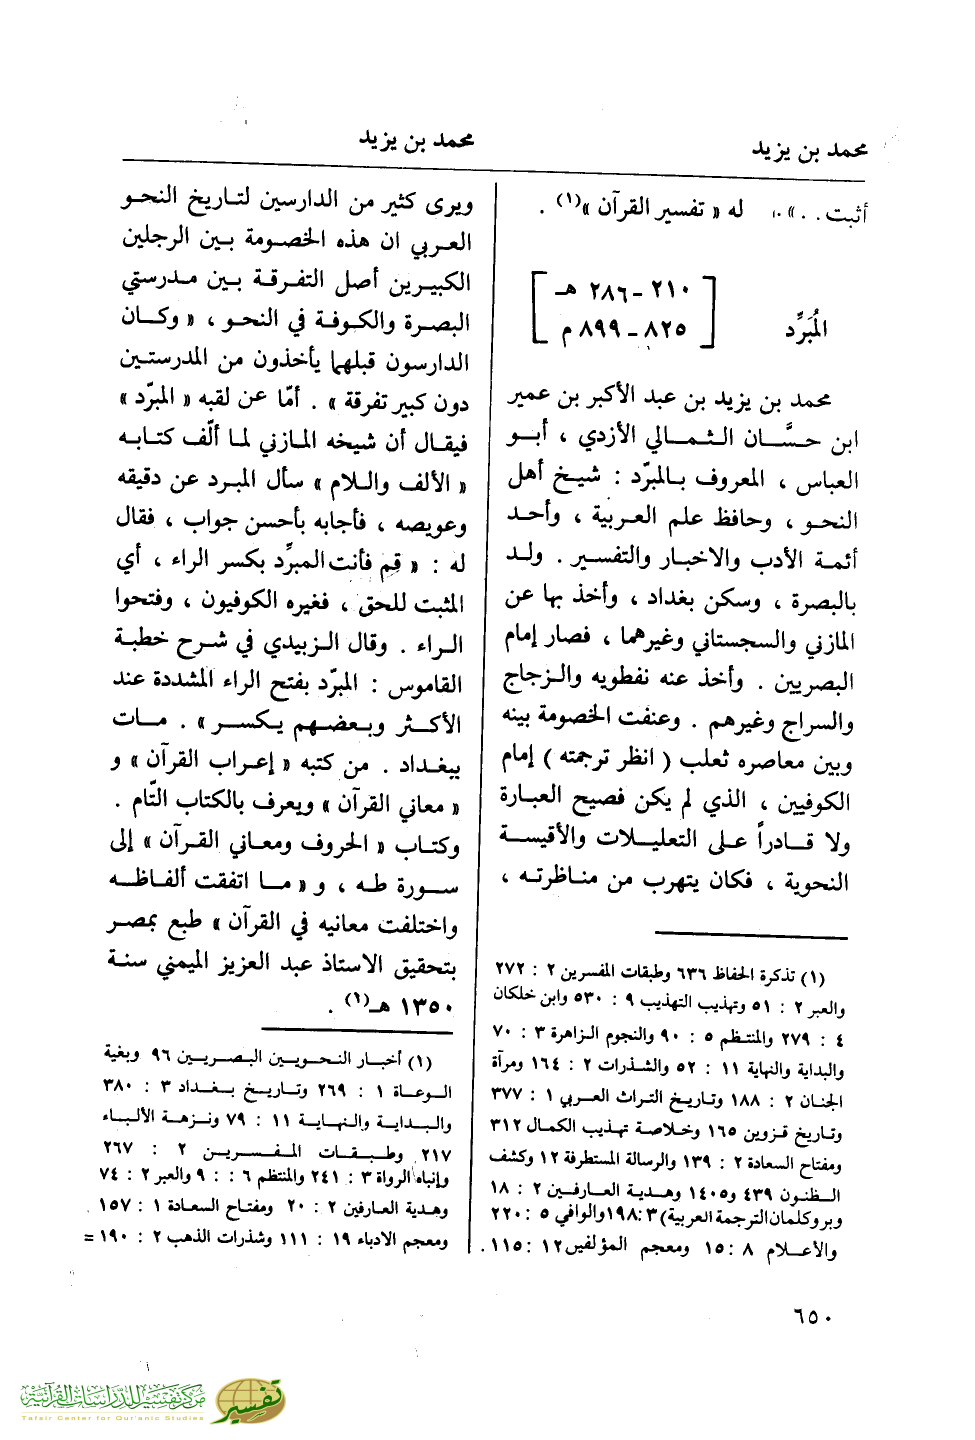 محمد بن يزيد
محمد بن يزيد
أثبت . . » له « تفسير القرآن »(١) .
المُبَرِّد
٢١٠ - ٢٨٦ هـ
٨٢٥ - ٨٩٩ م
محمد بن يزيد بن عبد الأكبر بن عمير
ابن حسَّان الثمالي الأزدي ، أبو
العباس ، المعروف بالمبرّد : شيخ أهل
النحو ، وحافظ علم العربية ، وأحد
أئمة الأدب والاخبار والتفسير . ولد
بالبصرة ، وسكن بغداد ، وأخذ بها عن
المازني والسجستاني وغيرهما ، فصار إمام
البصريين . وأخذ عنه نفطويه والزجاج
والسراج وغيرهم . وعنفت الخصومة بينه
وبين معاصره ثعلب ( انظر ترجمته ) إمام
الكوفيين ، الذي لم يكن فصيح العبارة
ولا قادراً على التعليلات والأقيسة
النحوية ، فكان يتهرب من مناظرته ،
(١) تذكرة الحفاظ ٦٣٦ وطبقات المفسرين ٢ : ٢٧٢
والعبر ٢ : ٥١ وتهذيب التهذيب ٩ : ٥٣٠ وابن خلكان
٤ : ٢٧٩ والمنتظم ٥ : ٩٠ والنجوم الزاهرة ٣ : ٧٠
والبداية والنهاية ١١ : ٥٢ والشذرات ٢ : ١٦٤ ومرآة
الجنان ٢ : ١٨٨ وتاريخ التراث العربي ١ : ٣٧٧
وتاريخ قزوين ١٦٥ وخلاصة تهذيب الكمال ٣١٢
ومفتاح السعادة ٢ : ١٣٩ والرسالة المستطرفة ١٢ وكشف
الظنون ٤٣٩ و١٤٠٥ وهدية العارفين ٢ : ١٨
وبروكلمان الترجمة العربية) ٣ : ١٩٨ والوافي ٥ : ٢٢٠
والأعلام ٨ : ١٥ ومعجم المؤلفين ١٢ : ١١٥ .
ويرى كثير من الدارسين لتاريخ النحو
العربي ان هذه الخصومة بين الرجلين
الكبيرين أصل التفرقة بين مدرستي
البصرة والكوفة في النحو ، « وكان
الدارسون قبلهما يأخذون من المدرستين
دون كبير تفرقة » . أمّا عن لقبه « المبرّد »
فيقال أن شيخه المازني لما ألّف كتابه
« الألف واللام » سأل المبرد عن دقيقه
وعويصه ، فأجابه بأحسن جواب ، فقال
له : « قم فأنت المبرِّد بكسر الراء ، أي
المثبت للحق ، فغيره الكوفيون ، وفتحوا
الراء . وقال الزبيدي في شرح خطبة
القاموس : المبرّد بفتح الراء المشددة عند
الأكثر وبعضهم يكسر » . مات
ببغداد . من كتبه « إعراب القرآن » و
« معاني القرآن » ويعرف بالكتاب التّام .
وكتاب « الحروف ومعاني القرآن » إلى
سورة طه ، و « ما اتفقت ألفاظه
واختلفت معانيه في القرآن » طبع بمصر
بتحقيق الاستاذ عبد العزيز الميمني سنة
١٣٥٠ هـ(١) .
(١) أخبار النحويين البصريين ٩٦ وبغية
الوعاة ١ : ٢٦٩ وتاريخ بغداد ٣ : ٣٨٠
والبداية والنهاية ١١ : ٧٩ ونزهة الألباء
٢١٧ وطبقات المفسرين ٢ : ٢٦٧
وإنباه الرواة ٣ : ٢٤١ والمنتظم ٦ : : ٩ والعبر ٢ : ٧٤
وهدية العارفين ٢ : ٢٠ ومفتاح السعادة ١ : ١٥٧
ومعجم الادباء ١٩ : ١١١ وشذرات الذهب ٢ : ١٩٠ =
٦٥٠
مركز تفسير للدراسات القرآنية
Tafsir Center for Qur'anic Studies
تفسير